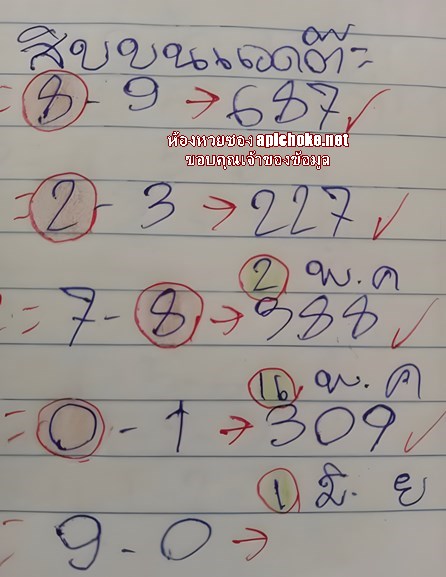 สิบบนแอดต๊ะ
= 8 - 9 → 687 ✓
ห้องหวยซอง apichoke.net
ขอบคุณเจ้าของข้อมูล
= 2 - 3 → 227 ✓
2 พ.ค
= 7 - 8 → 388 ✓
16 พ.ค
= 0 - 1 → 309 ✓
1 มิ. ย
= 9 - 0 →